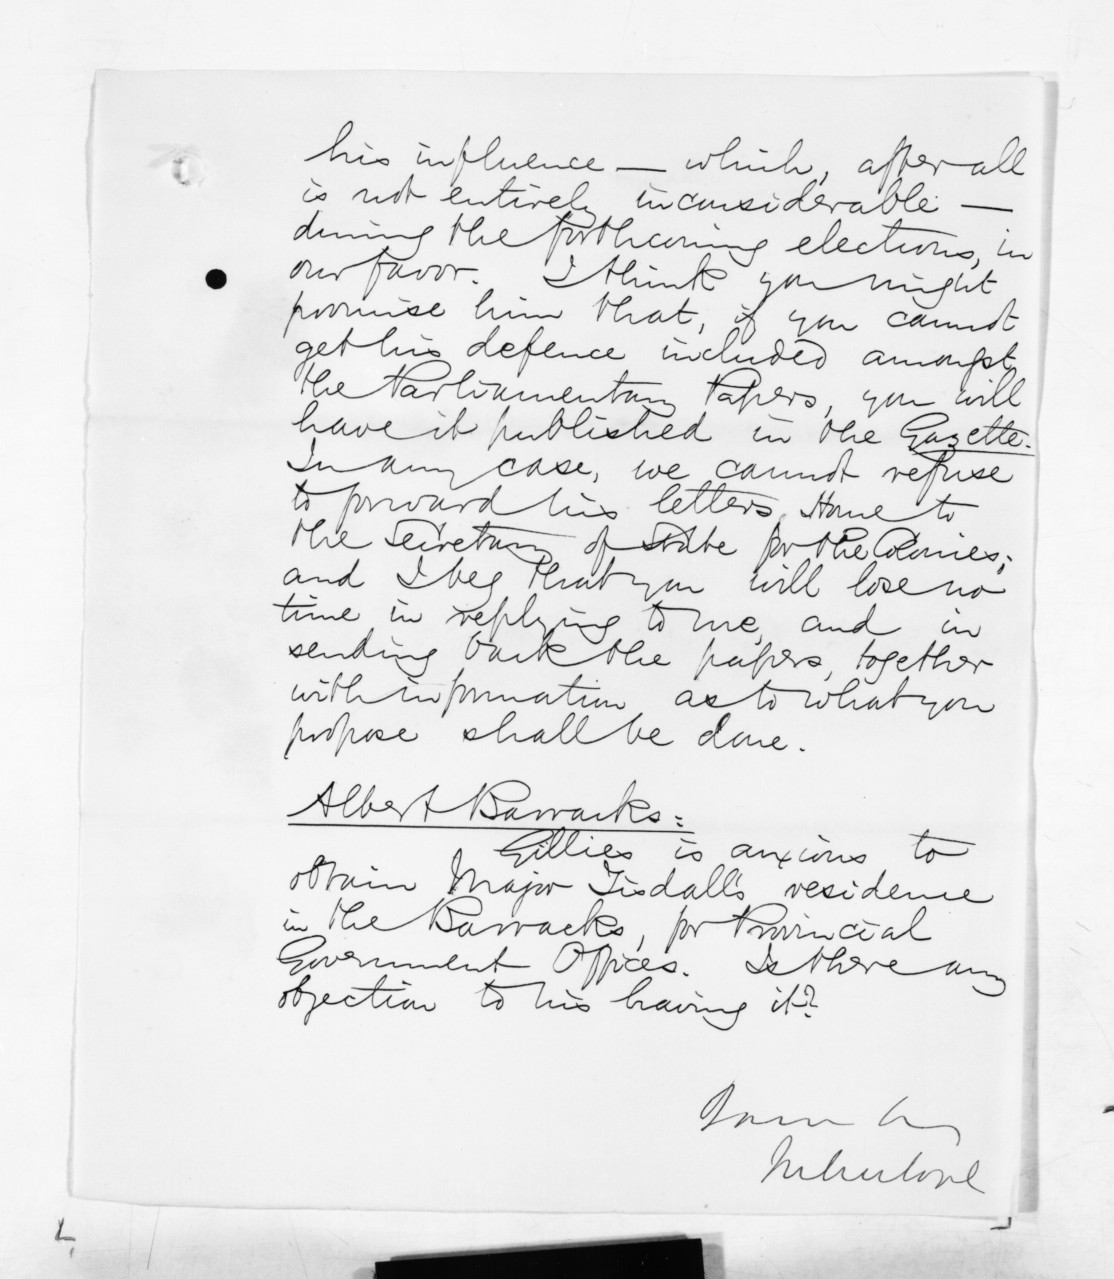 his influence — which, after all
is not entirely inconsiderable —
during the forthcoming elections, in
our favor. I think you might
promise him that, if you cannot
get his defence included amongst
the Parliamentary Papers, you will
have it published in the Gazette.
In any case, we cannot refuse
to forward his letters Home to
the Secretary of State for the Colonies;
and I beg that you will lose no
time in replying to me, and in
sending back the papers, together
with information as to what you
propose shall be done.
Albert Barracks:
Gillies is anxious to
obtain Major Tisdall's residence
in the Barracks, for Provincial
Government Offices. Is there any
objection to his having it?